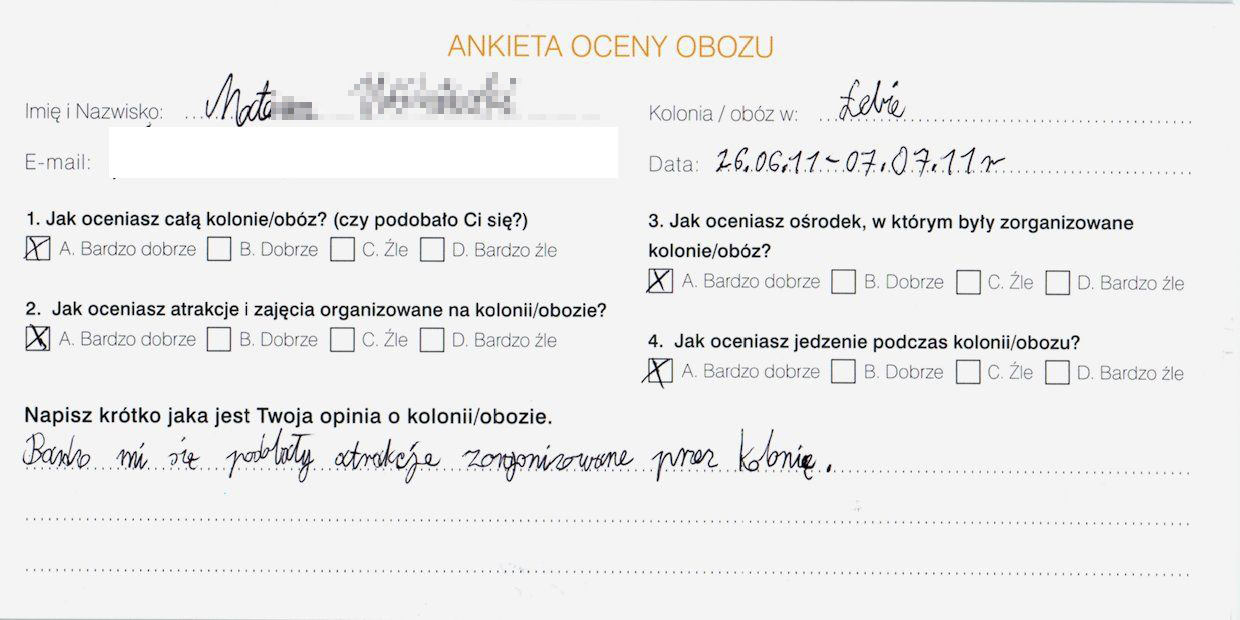 ANKIETA OCENY OBOZU
Imię i Nazwisko:
Kolonia / obóz w: Łebie
E-mail:
Data: 26.06.11-07.07.11r
1. Jak oceniasz całą kolonie/obóz? (czy podobało Ci się?)
X A. Bardzo dobrze B. Dobrze C. Źle D. Bardzo źle
2. Jak oceniasz atrakcje i zajęcia organizowane na kolonii/obozie?
X A. Bardzo dobrze B. Dobrze C. Źle D. Bardzo źle
3. Jak oceniasz ośrodek, w którym były zorganizowane
kolonie/obóz?
X A. Bardzo dobrze B. Dobrze C. Źle D. Bardzo źle
4. Jak oceniasz jedzenie podczas kolonii/obozu?
X A. Bardzo dobrze B. Dobrze C. Źle D. Bardzo źle
Napisz krótko jaka jest Twoja opinia o kolonii/obozie.
Bardzo mi się podobały atrakcje zorganizowane przez kolonię.